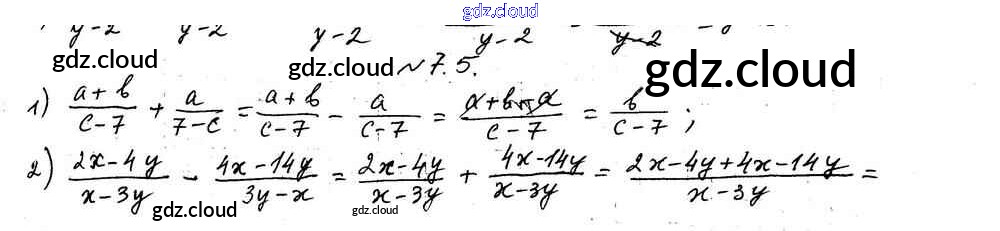 gdz.cloud
y-2 y-2 y-2 y-2 y-2
gdz.cloud № 7.5. gdz.cloud
1) (a+b)/(c-7) + a/(7-c) = (a+b)/(c-7) - a/(c-7) = (a+b-a)/(c-7) = b/(c-7);
2) (2x-4y)/(x-3y) - (4x-14y)/(3y-x) = (2x-4y)/(x-3y) + (4x-14y)/(x-3y) = (2x-4y+4x-14y)/(x-3y) =
gdz.cloud gdz.cloud gdz.cloud gdz.cloud